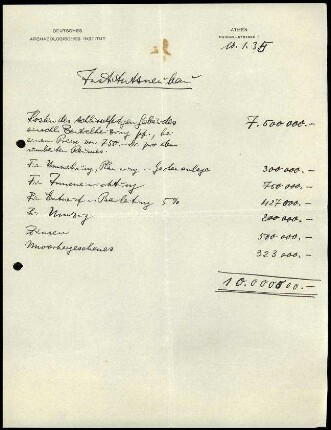 DEUTSCHES
ARCHAEOLOGISCHES INSTITUT
ATHEN
10.1.35
Institutsneubau
Kosten des schlüsselfertigen Gebäudes
einschl. Zentralheizung pp., bei 7.500 000.—
einem Preise von 750.- Dr. pro cbm
umbauten Raumes.
Für Umwehrung, Planung u. Gartenanlage 300 000.—
Für Innenausstattung 750 000.—
Für Entwurf u. Bauleitung 5% 427 000.—
Für Umzug 200 000.—
Zinsen 500 000.—
Unvorhergesehenes 323 000.—
10.000000.—